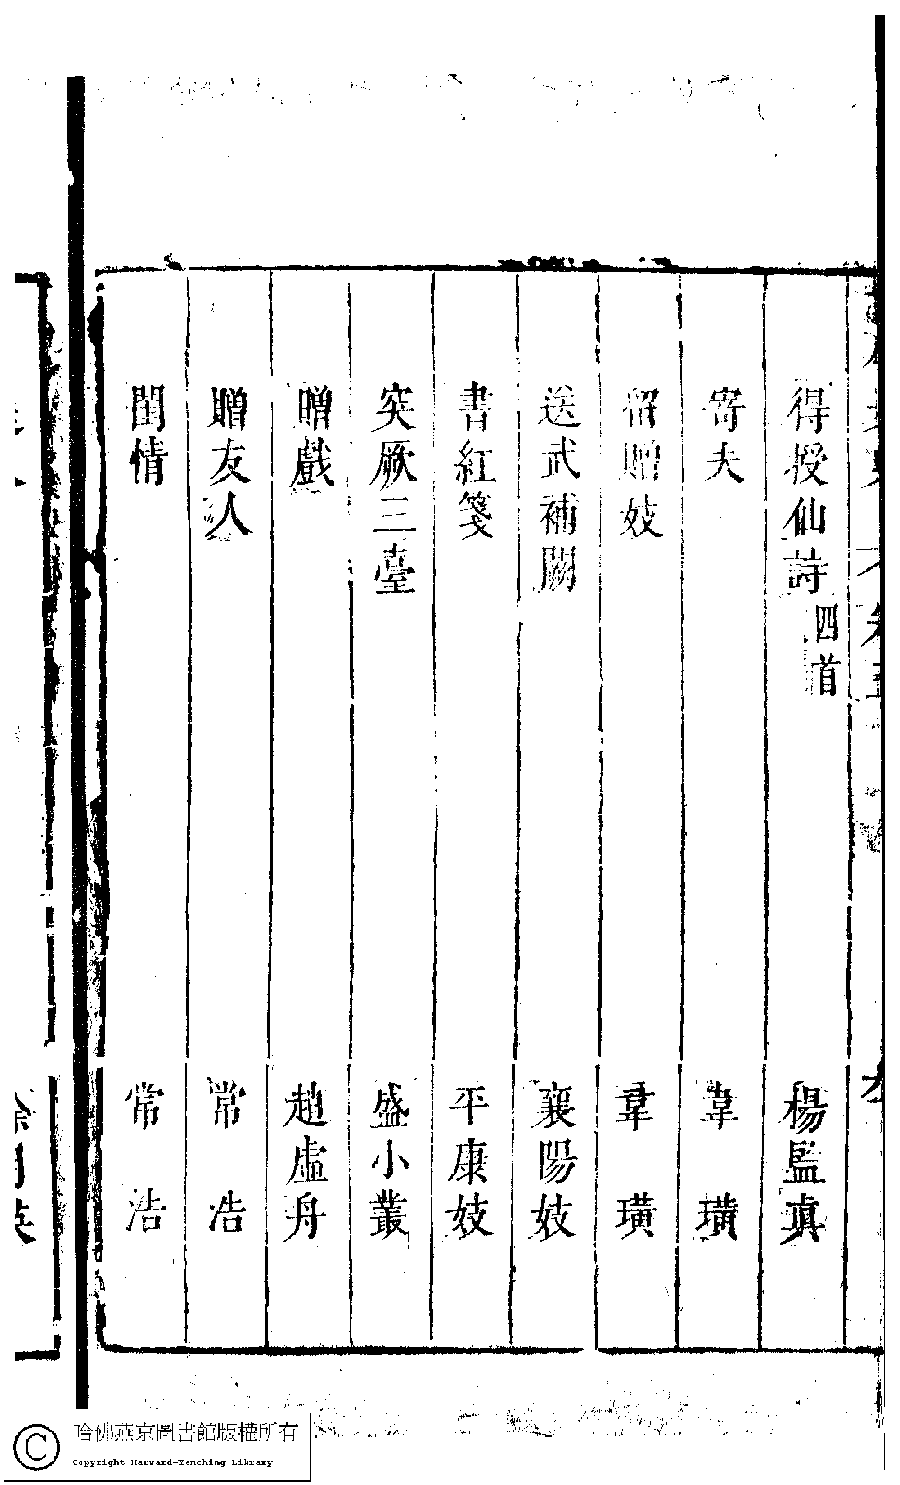 得授仙詩四首 楊監真
寄夫 韋璜
留贈妓 韋璜
送武補闕 襄陽妓
書紅箋 平康妓
突厥三臺 盛小叢
贈戲 趙虛舟
贈友人 常浩
閨情 常浩
哈佛燕京圖書館版權所有
Copyright Harvard-Yenching Library